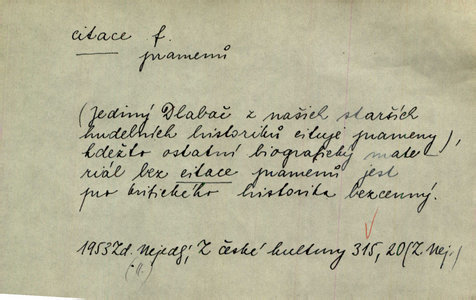 citace f.
pramenů
(Jediný Dlabač z našich starších
hudebních historiků cituje prameny),
kdežto ostatní biografický mate-
riál bez citace pramenů jest
pro kritického historika bezcenný.
1953 Zd. Nejedlý, Z české kultury 315, 20 (Z Nej.)